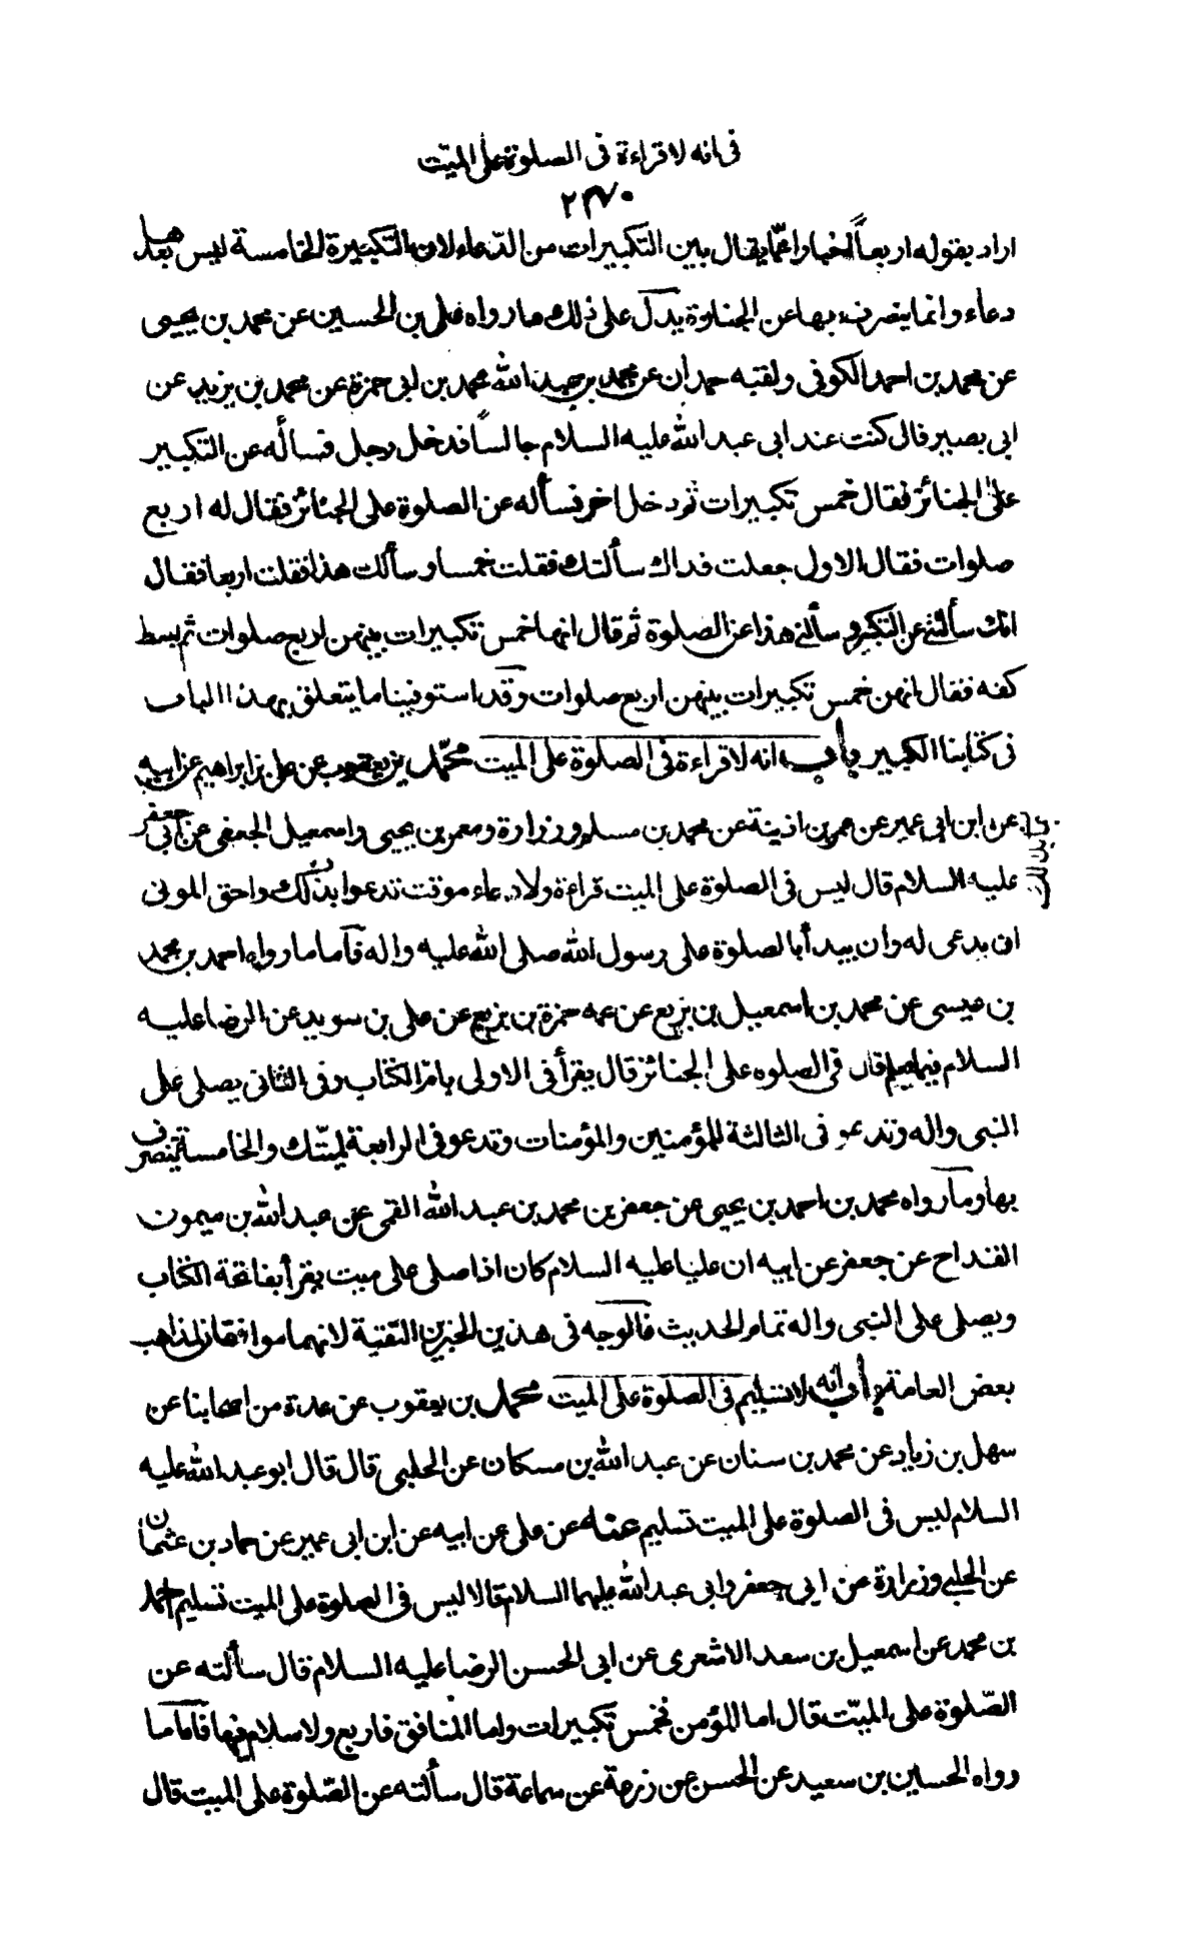 فى انه لا قراءة فى الصلوة على الميّت
٢٣٧٠
اراد بقوله اربعاً اخبارا عمّا يقال بين التكبيرات من الدّعاء لان التكبيرة الخامسة ليس بعدها
دعاء وانما ينصرف بها عن الجنازة يدل على ذلك ما رواه على بن الحسين عن محمد بن يحيى
عن محمد بن احمد الكوفى ولقبه حمدان عن محمد بن عبد الله محمد بن ابى حمزة عن محمد بن يزيد عن
ابى بصير قال كنت عند ابى عبد الله عليه السلام جالساً فدخل رجل فسأله عن التكبير
على الجنائز فقال خمس تكبيرات ثم دخل اخر فسأله عن الصلوة على الجنائز فقال له اربع
صلوات فقال الاول جعلت فداك سألتك فقلت خمسا و سألك هذا فقلت اربعا فقال
انك سألتنى عن التكبير و سألنى هذا عن الصلوة ثم قال انها خمس تكبيرات بينهن اربع صلوات ثم بسط
كفه فقال انهن خمس تكبيرات بينهن اربع صلوات وقد استوفينا ما يتعلق بهذا الباب
فى كتابنا الكبير باب انه لا قراءة فى الصلوة على الميت محمّد بن يعقوب عن على بن ابراهيم عن ابيه
عن ابن ابى عمير عن عمر بن اذينة عن محمد بن مسلم وزرارة ومعمر بن يحيى واسمعيل الجعفى عن ابى جعفر
عليه السلام قال ليس فى الصلوة على الميت قراءة ولا دعاء موقت تدعوا بذلك واحق الموتى
ان يدعى له وان يبدأ بالصلوة على رسول الله صلى الله عليه واله فأما ما رواه احمد بن محمد
بن عيسى عن محمد بن اسمعيل بن بزيع عن عمه حمزة بن بزيع عن على بن سويد عن الرضا عليه
السلام فيما يعلم قال فى الصلوه على الجنائز قال يقرأ فى الاولى بام الكتاب وفى الثانى يصلى على
النبى واله وتدعو فى الثالثة للمؤمنين والمؤمنات وتدعو فى الرابعة لميّتك والخامسة ينصرف
بها وما رواه محمد بن احمد بن يحيى عن جعفر بن محمد بن عبد الله القمى عن عبد الله بن ميمون
القداح عن جعفر عن ابيه ان عليا عليه السلام كان اذا صلى على ميت يقرأ بفاتحة الكتاب
ويصلى على النبى واله تمام الحديث فالوجه فى هذين الخبرين التّقيّة لانهما موافقان لمذاهب
بعض العامة باب انه لا تسليم فى الصلوة على الميت محمّد بن يعقوب عن عدة من اصحابنا عن
سهل بن زياد عن محمد بن سنان عن عبد الله بن مسكان عن الحلبى قال قال ابو عبد الله عليه
السلام ليس فى الصلوة على الميت تسليم عنه عن على عن ابيه عن ابن ابى عمير عن حماد بن عثمان
عن الحلبى وزرارة عن ابى جعفر وابى عبد الله عليهما السلام قالا ليس فى الصلوة على الميت تسليم احمد
بن محمد عن اسمعيل بن سعد الاشعرى عن ابى الحسن الرضا عليه السلام قال سألته عن
الصّلوة على الميّت قال اما المؤمن فخمس تكبيرات واما المنافق فاربع ولا سلام فيها فأما ما
رواه الحسين بن سعيد عن الحسن عن زرعة عن سماعة قال سألته عن الصّلوة على الميت قال